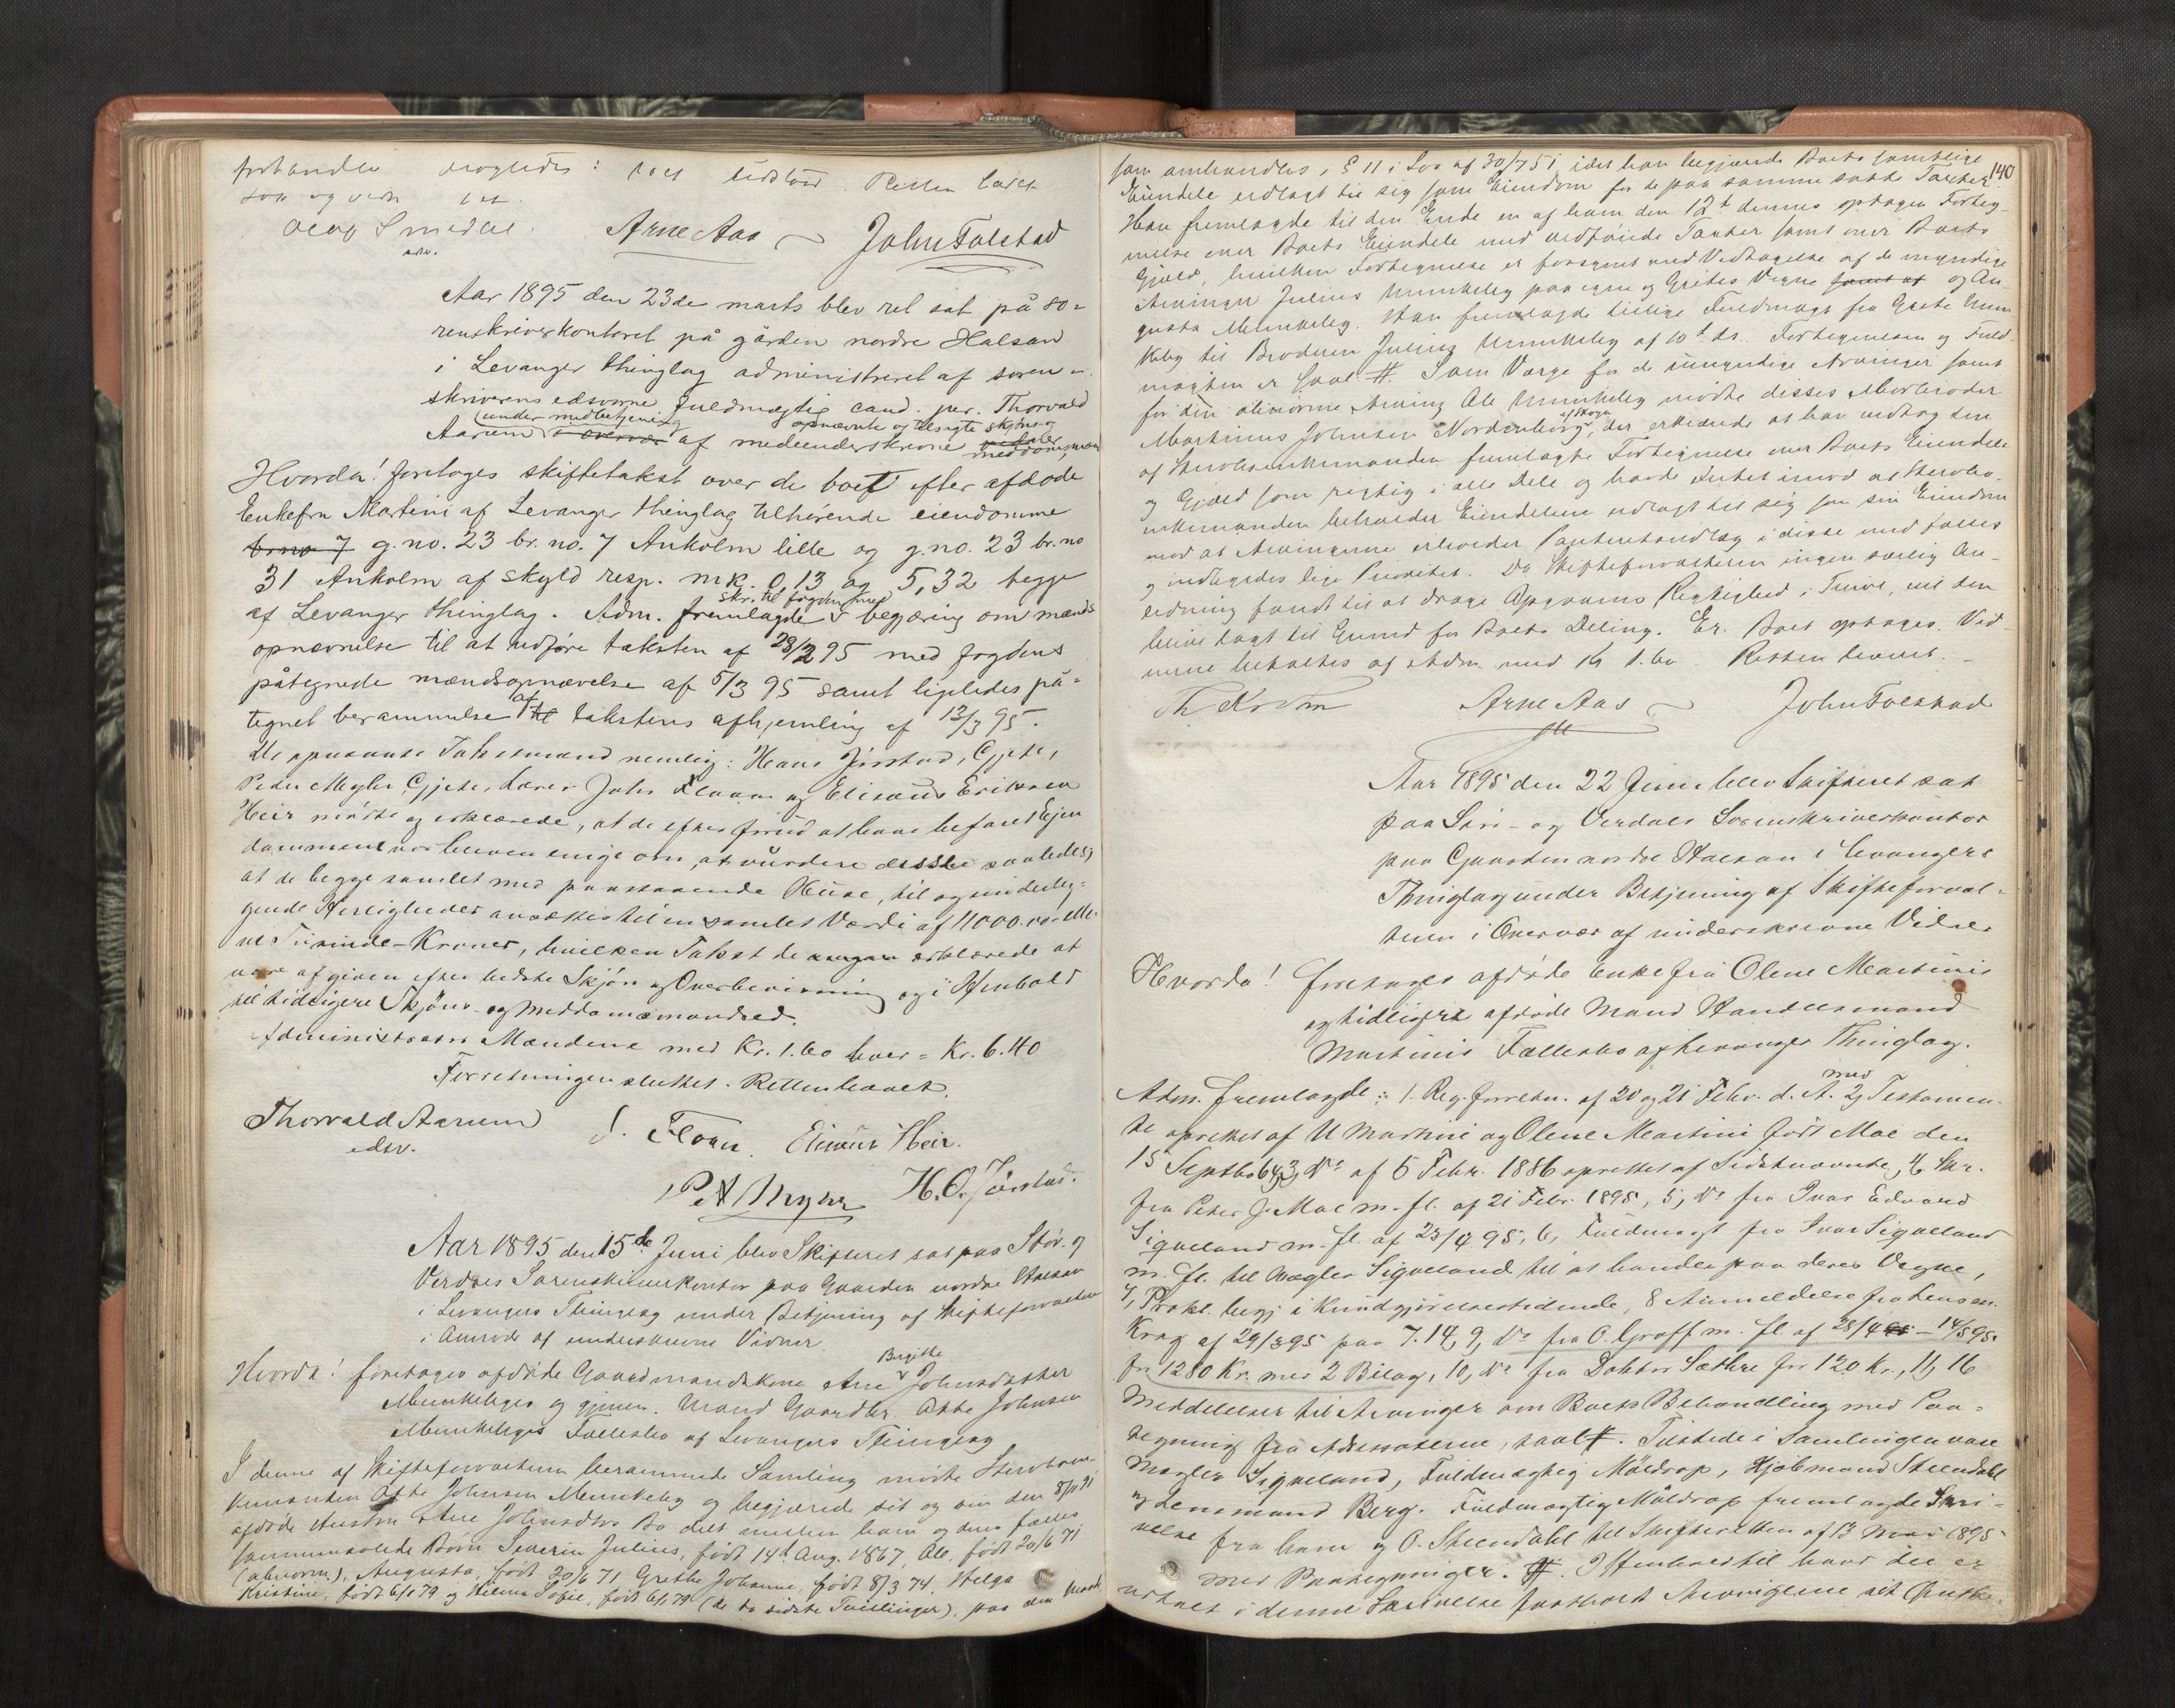 forhandle
Retten hævet
Olav Smedal
edsv.
Arne Aas John Folstad
Aar 1895 den 23de marts blev ret sat på so=
renskriverkontoret på gården nordre Halsan
i Levanger thinglag administreret af soren=
skriverens edsvorne fuldmægtig cand. jur. Thorvald
under medbetjening opnævnte og tilsagte skjöns og
Aarum i overvær af medunderskrevne meddomsmænd
Hvorda! foretoges skiftetakst over de boet efter afdöde
Enkefru Martini af Levanger thinglag tilhörende eiendomme
br. no 7 g. no. 23 br. no. 7 Ankolm lille og g. no. 23 br. no
31 Ankolm af skyld resp. mk. 0,13 og 5,32 begge
skr. til fogden med
af Levanger thinglag. Adm. fremlagde begjæring om mænds
opnævnelse til at udföre taksten af 23/2 95 med fogdens
påtegnede mændsopnævelse af 5/3 95 samt ligeledes på=
tegnet berammelse af til takstens afhjemling af 12/3 95.
De opnævnte Takstmænd nemlig: Hans Jörstad, Gjete,
Peder Mygler Gjete, Lærer John Floan og Elisæus Eriksen
Heir mödte og erklærede, at de efter forud at have befaret Ejen
dommene var bleven enige om, at vurdere disse saaledes,
at de begge samlet med paastaaende Huse, til og underlig=
gende Herligheder ansættes til en samlet Værdi af 11000.00 Elle=
ve Tusinde-Kroner, hvilken Takst de erklærede at
være afgiven efter bedste Skjön og Overbevisning og i Henhold
til tidligere Skjöns- og Meddomsmandsed.
Administrator Mændene med Kr. 1.60 hver = Kr. 6.40
Forretningen sluttet. Retten hævet.
Thorvald Aarum
edsv.
J. Floan. Elisæus Heir.
P. A. Mygler H. O. Jörstad.
Aar 1895 den 15de Juni blev Skifteret sat paa Stör- og
Verdals Sorenskriverkontor paa Gaarden nordre Halsan
i Levangers Thinglag under Betjening af Skifteforvalteren
i Overvær af underskrevne Vidner
Birgitte
Hvorda! foretoges afdöde Gaardmandskone Ane Johnsdatter
Munkebyes og gjenlev. Mand Gaardbr. Otte Johnsen
Munkebyes Fællesbo af Levangers Thinglag
I denne af Skifteforvalteren berammede Samling mödte Stervbos-
enkemanden Otte Johnsen Munkeby og begjærede sit og sin den 8/11 91
afdöde Hustru Ane Johnsdtrs Bo delt mellem ham og deres fælles
sammenavlede Börn Severin Julius, födt 14de Aug. 1867, Ole födt 20/6 71
(abnorm), Augusta, födt 20/6 71 Grethe Johanne, födt 8/3 74, Helga
Kristine, födt 6/1 79 og Hilma Sofie, födt 6/1 79 (de to sidste Tvillinger), paa den Maade
140
som omhandles i § 11 i Lov af 30/7 51 idet han begjærede Boets samtlige
Eiendele udlagt til sig som Eiendom for de paa samme satte Taxter.
Han fremlagde til den Ende en af ham den 12te dennes optagen Forteg-
nelse over Boets Eiendele med vedföiede Taxter samt over Boets
Gjæld, hvilken Fortegnelse er forsynet med Vedtagelse af de myndige
Arvinger Julius Munkeby paa egne og Gretes Vegne samt af og Au-
gusta Munkeby. Han fremlagde tillige Fuldmagt fra Grete Mun-
keby til Broderen Julius Munkeby af 10de ds. Fortegnelsen og Fuld-
magten er saal. #. Som Værge for de umyndige Arvinger samt
for den abnorme Arving Ole Munkeby mödte disses Morbroder
af Skogn
Martinus Johnsen Nordenborg, der erklærede at han vedtog den
af Stervbosenkemanden fremlagte Fortegnelse over Boets Eiendele
og Gjæld som rigtig i alle Dele og havde Intet imod at Stervbo-
enkemanden beholder Eiendelene udlagt til sig som sin Eiendom
mod at Arvingerne erholder Panteretsudlæg i disse med fælles
og indbyrdes lige Prioritet. Da Skifteforvalteren ingen særlig An-
ledning fandt til at drage Opgavens Rigtighed i Tvivl, vil den
blive lagt til Grund for Boets Deling. Er. Boet optages. Vid-
nerne betaltes af Adm. med Kr 1.60. Retten hævet.
Arne Aas John Folstad
Aar 1895 den 22 Juni blev Skifteret sat
paa Stör- og Verdals Sorenskriverkontor
paa Gaarden nordre Halsan i Levangers
Thinglag under Betjening af Skifteforval=
teren i Overvær af underskrevne Vidner
Hvorda! foretoges afdöde Enkefru Olene Martinis
og tidligere afdöde Mand Handelsmand
Martinis Fællesbo af Levanger Thinglag.
med
Adm. fremlagde: 1. Reg. forretn. af 20 og 21 Febr. d. A. 2, Testamen-
te oprettet af U Martini og Olene Martini födt Moe den
15 Septbr 64, 3, Do af 5 Febr. 1886 oprettet af Sidstnævnte, 4, Skr.
fra Peter J. Moe m. fl. af 21 Febr. 1895, 5, Do fra Ivar Edvard
Siqveland m. fl. af 23/4 95, 6, Fuldmagt fra Ivar Siqveland
m. fl. til Mægler Siqveland til at handle paa deres Vegne,
7, Prokl. begj i Kundgjörelsestidende, 8 Anmeldelse fra Lensm.
Krag af 29/3 95 paa 7.14, 9, Do fra O. Graff m. fl. af 28/4 95 - 14/5 95
for 1280 Kr. med 2 Bilag, 10, Do fra Doktor Sæthre for 120 Kr., 11, 16
Meddelelser til Arvinger om Boets Behandling med Paa=
tegning fra Adressaterne, saal #. Tilstede i Samlingen vare
Mægler Siqveland, Fuldmægtig Möldrop, Kjöbmand Steendahl
og Lensmand Berg. Fuldmægtig Möldrop fremlagde Skri-
velse fra ham og O. Steendahl til Skifteretten af 13 Mai 1895
med Paategninger. #. I Henhold til hvad der er
udtalt i denne Skrivelse paastod Arvingerne sit